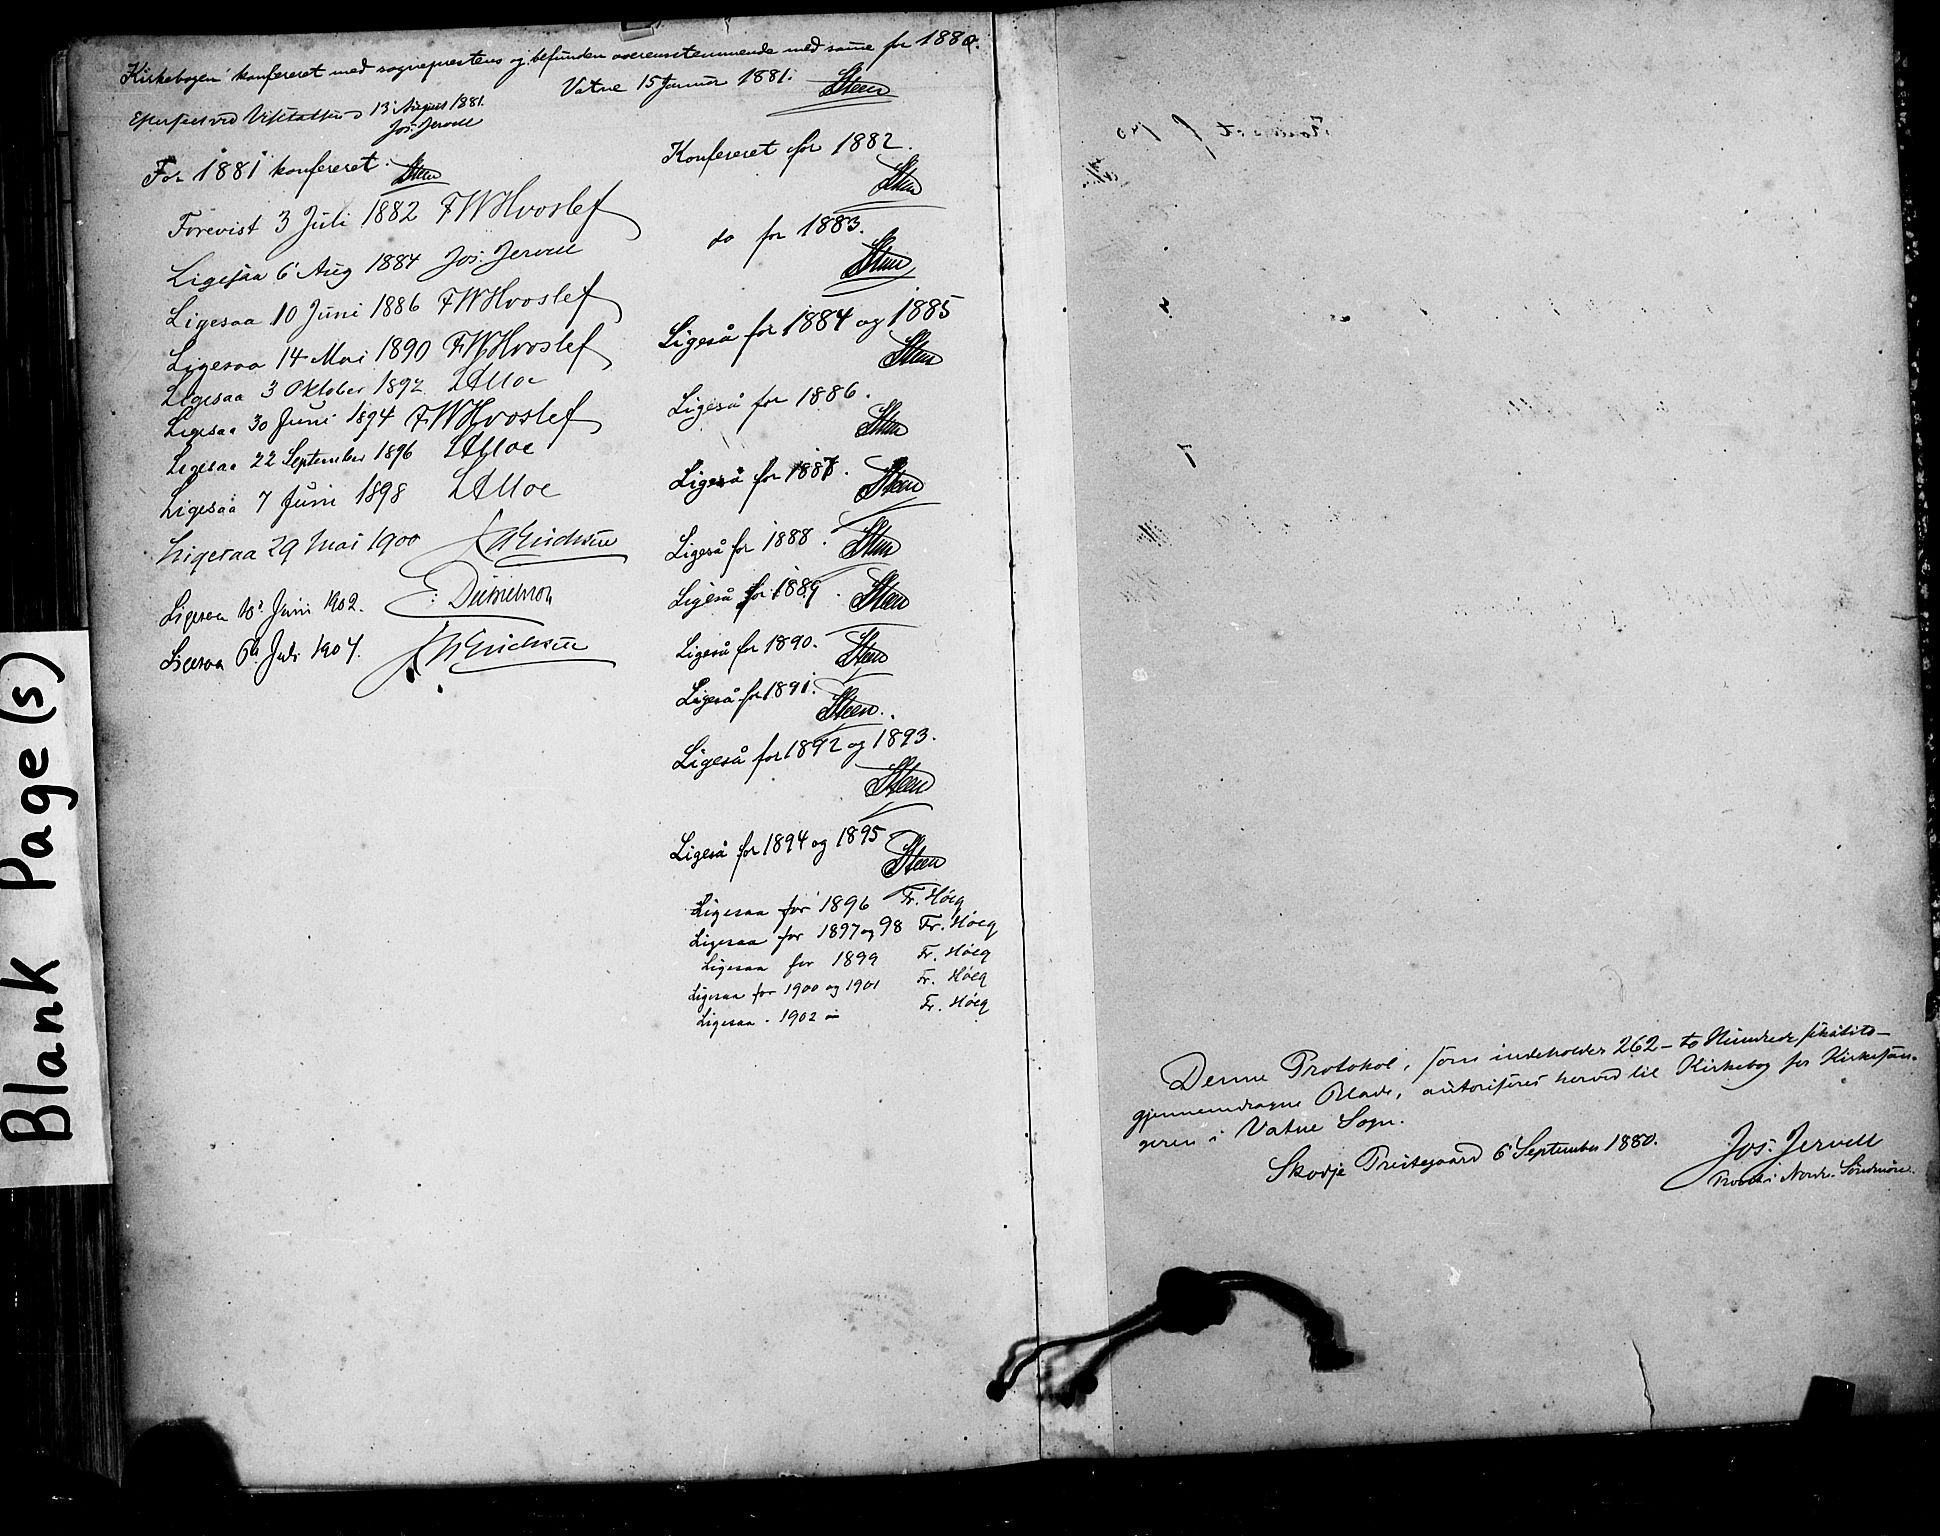 Kirkebogen konfereret med sogneprestens og befunden overensstemmende med samme for 1880.
Vatne 15 Januar 1881. Steen
Efterseet ved Visitatsen 13 August 1881.
Jos. Jervell
For 1881 konfereret. Steen
Forevist 3 Juli 1882 FWHvoslef
Ligesaa 6 Aug 1884 Jos. Jervell
Ligesaa 10 Juni 1886 FWHvoslef
Ligesaa 14 Mai 1890 FWHvoslef
Ligesaa 3 Oktober 1892
Ligesaa 30 Juni 1894 FWHvoslef
Ligesaa 22 September 1896
Ligesaa 7 Juni 1898
Ligesaa 29 Mai 1900
Ligesaa Juni 1902.
Ligesaa Juli 1904.
Konfereret for 1882.
Steen
do for 1883.
Steen
Ligeså for 1884 og 1885
Steen
Ligeså for 1886.
Steen
Ligeså for 1887. Steen
Ligeså for 1888. Steen
Ligeså for 1889. Steen
Ligeså for 1890. Steen
Ligeså for 1891.
Steen.
Ligeså for 1892 og 1893.
Steen
Ligeså for 1894 og 1895
Steen
Ligesaa for 1896 Fr. Höeg
Ligesaa for 1897 og 98 Fr. Höeg
Ligesaa for 1899 Fr. Höeg
Ligesaa for 1900 og 1901 Fr. Höeg
Ligesaa - 1902 Fr. Höeg
Denne Protokol, som indeholder 262 - to Hundrede
gjennemdragne Blade, autoriseres herved til Kirkebog for Kirkesan-
geren i Vatne Sogn.
Skodje Prestegaard 6 September 1880.
Jos. Jervell
Provst i Nordre Søndmøre.
Blank Page(s)